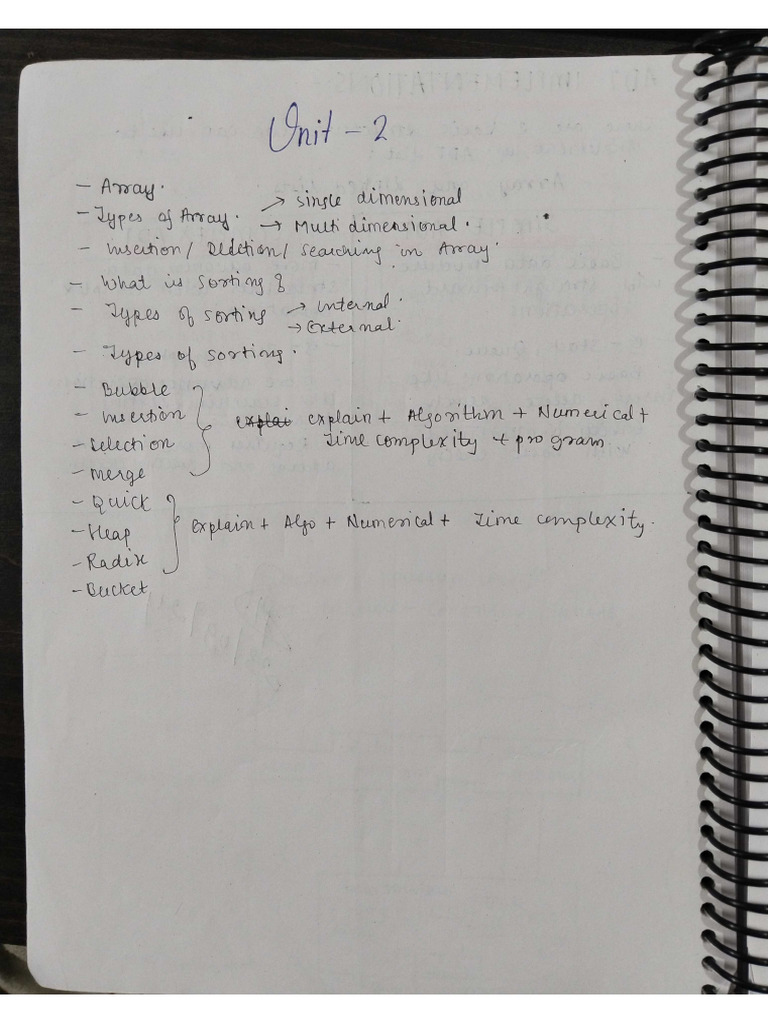 Unit - 2
- Array.
- Types of Array. → single dimensional
→ Multi dimensional.
- Insertion / Deletion / Searching in Array.
- What is sorting ?
- Types of sorting → Internal.
→ External.
- Types of sorting.
- Bubble
- Insertion
- Selection
- Merge
explai explain + Algorithm + Numerical +
Time complexity + program
- Quick
- Heap
- Radix
explain + Algo + Numerical + Time complexity.
- Bucket